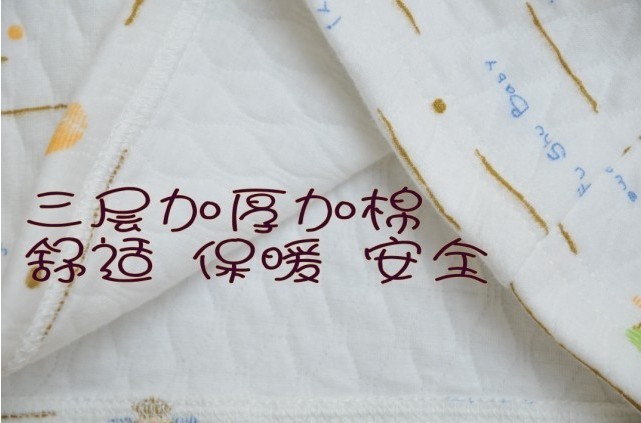 三层加厚加棉
舒适 保暖 安全
Fu Shu Baby